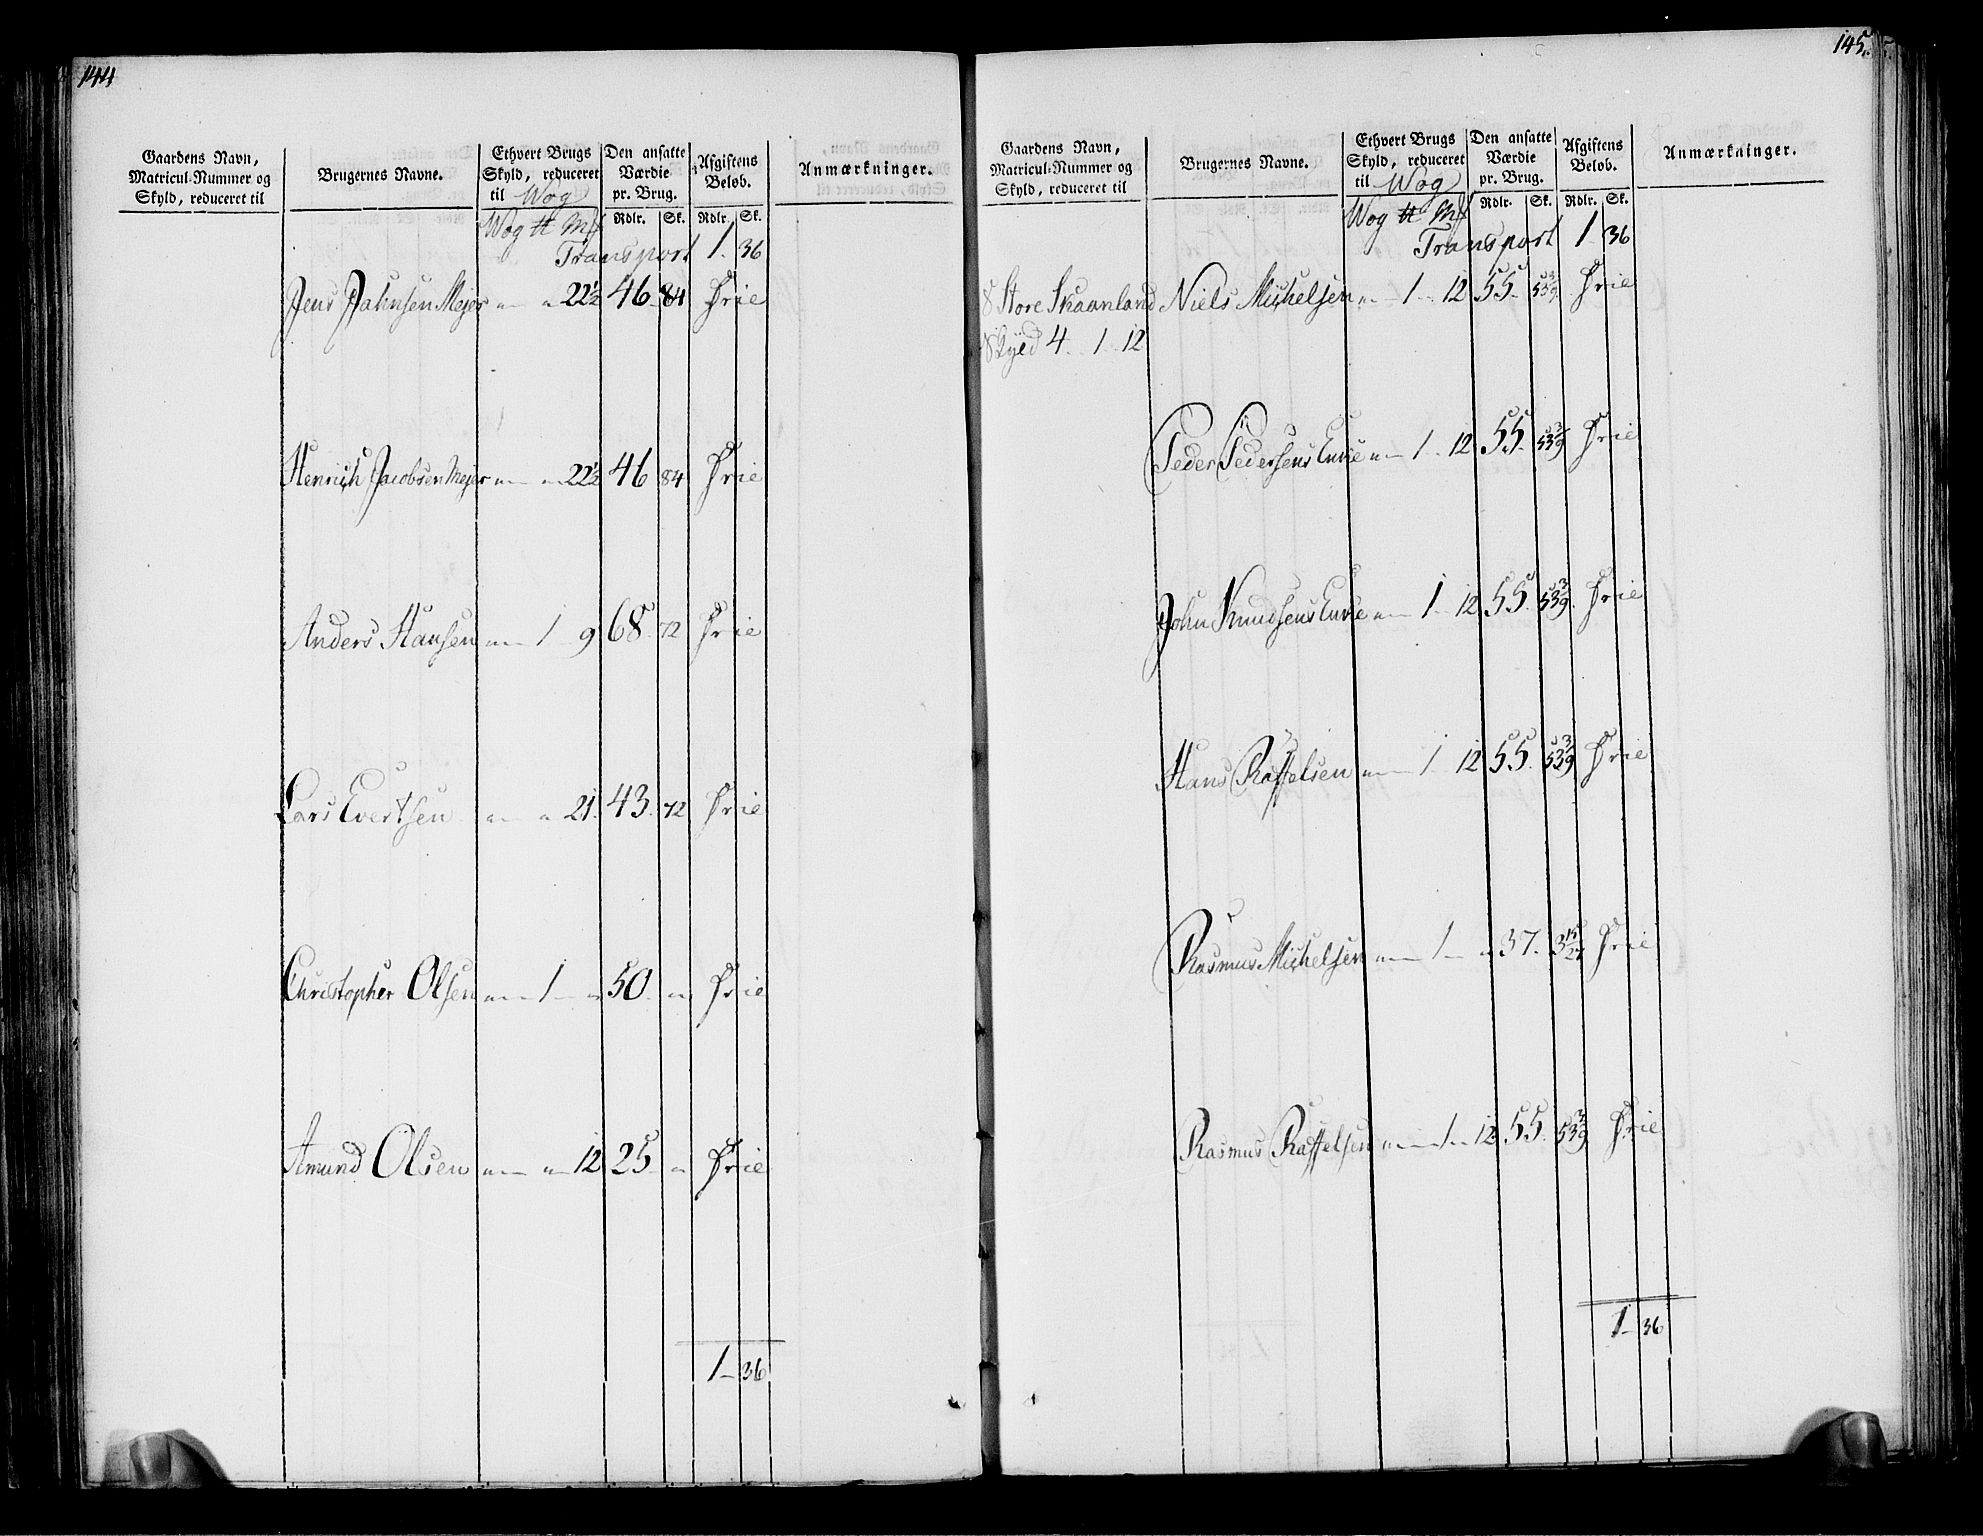 144
Gaardens Navn, Matricul-Nummer og Skyld, reduceret til
Brugernes Navne.
Ethvert Brugs Skyld, reduceret til Wog
Den ansatte Værdie pr. Brug.
Afgiftens Beløb.
Anmærkninger.
Wog ℔ Mk Rdlr. Sk. Rdlr. Sk.
Transport 1 36
Jens Jahnsen Mejer " — " 22½ 46 84 Frie
Henrich Jacobsen Mejer " — " 22½ 46 84 Frie
Anders Hansen " — 1 9 68 72 Frie
Lars Evertsen " — " 21 43 72 Frie
Christopher Olsen " — 1 — " 50 " Frie
Amund Olsen " — " 12 25 " Frie
1 — 36
145.
Gaardens Navn, Matricul-Nummer og Skyld, reduceret til
Brugernes Navne.
Ethvert Brugs Skyld, reduceret til Wog
Den ansatte Værdie pr. Brug.
Afgiftens Beløb.
Anmærkninger.
Wog ℔ Mk Rdlr. Sk. Rdlr. Sk.
Transport 1 36
8 Store Skaanland Niels Michelsen " — 1 — 12 55 53 3/9 Frie
Skyld 4 . 1 . 12
Peder Pedersens Enke " — 1 . 12 55 53 3/9 Frie
John Knudsens Enke " — 1 12 55 53 3/9 Frie
Hans Raffelsen " — 1 12 55 53 3/9 Frie
Rasmus Michelsen " — 1 — " 37 3 15/27 Frie
Rasmus Raffelsen " — 1 — 12 55 53 3/9 Frie
1 — 36